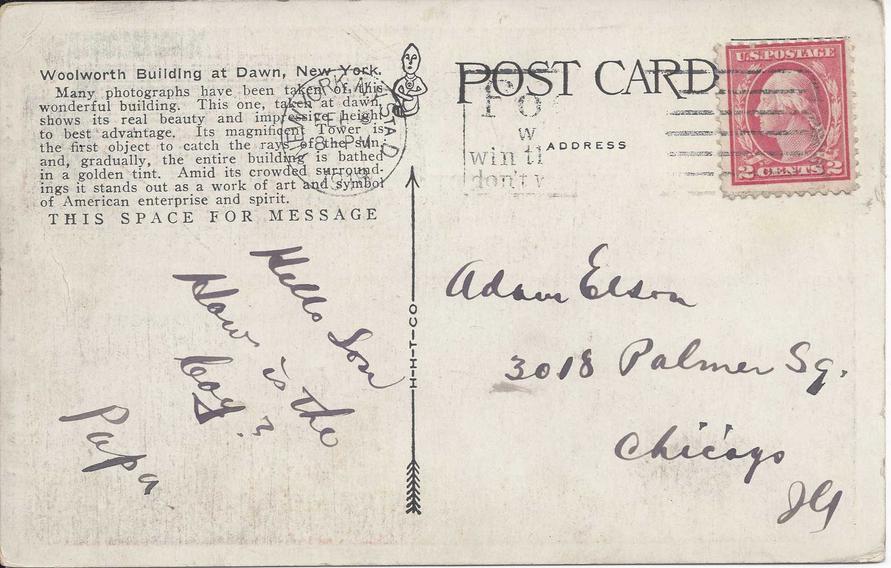 Woolworth Building at Dawn, New York.
Many photographs have been taken of this
wonderful building. This one, taken at dawn,
shows its real beauty and impressive height
to best advantage. Its magnificent Tower is
the first object to catch the rays of the sun,
and, gradually, the entire building is bathed
in a golden tint. Amid its crowded surround-
ings it stands out as a work of art and symbol
of American enterprise and spirit.
THIS SPACE FOR MESSAGE
Hello Son
How is the
boy?
Papa
H-H-T-CO
POST CARD
ADDRESS
Fo
w
win th
don't w
U.S. POSTAGE
2 CENTS 2
Adam Elson
3018 Palmer Sq.
Chicago
Ill